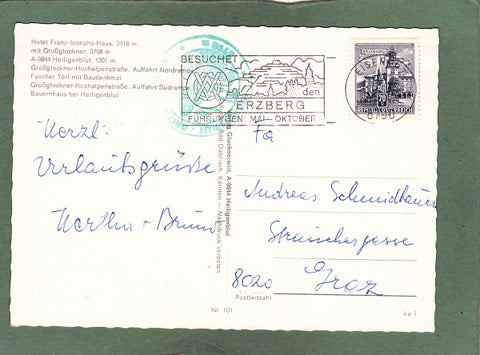 Hotel Franz-Josephs-Haus, 2418 m,
mit Großglockner, 3798 m
A-9844 Heiligenblut, 1301 m
Großglockner-Hochalpenstraße, Auffahrt Nordrampe
Fuscher Törl mit Baudenkmal
Großglockner-Hochalpenstraße, Auffahrt Südrampe
Bauernhaus bei Heiligenblut
BESUCHET
den
ERZBERG
FÜHRUNGEN: MAI - OKTOBER
REPUBLIK ÖSTERREICH
Herzl.
Urlaubsgrüße
Hertha + Bruno
A-9844 Heiligenblut
Kärnten - Nachdruck verboten
Fa
Andreas Schmidhauer
Strauchergasse
8020 Graz
Postleitzahl
Nr. 101